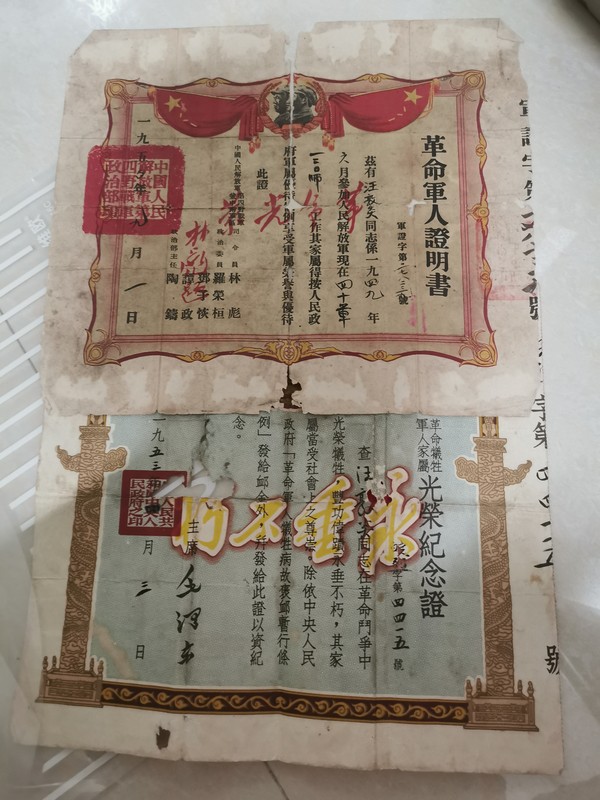 革命軍人證明書
軍證字第 號
茲有汪 同志係一九四九 年
月參加人民解放軍現在四十軍
一二〇師 工作其家屬得按人民政
府軍屬優待 例享受軍屬榮譽與優待
此證
中國人民解放軍第四野戰軍
司令員 林彪
政治委員 羅榮桓
鄧子恢
譚政
政治部主任 陶鑄
一九五 年 月一日
光榮
革命犧牲
軍人家屬
光榮紀念證
字第四四一五號
查汪 同志在革命鬥爭中
光榮犧牲，豐功偉績永垂不朽，其家
屬當受社會上之尊崇。除依中央人民
政府「革命軍人犧牲病故褒卹暫行條
例」發給卹金外，并發給此證以資紀
念。
主席 毛澤東
一九五三 月三日
永垂不朽
號
字第四四一五
號